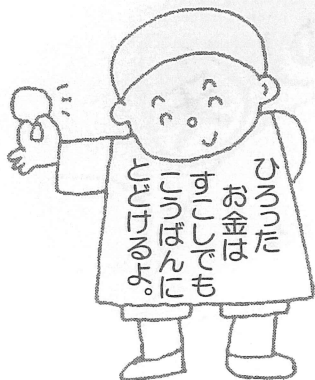 ひろった
お金は
すこしでも
こうばんに
とどけるよ。